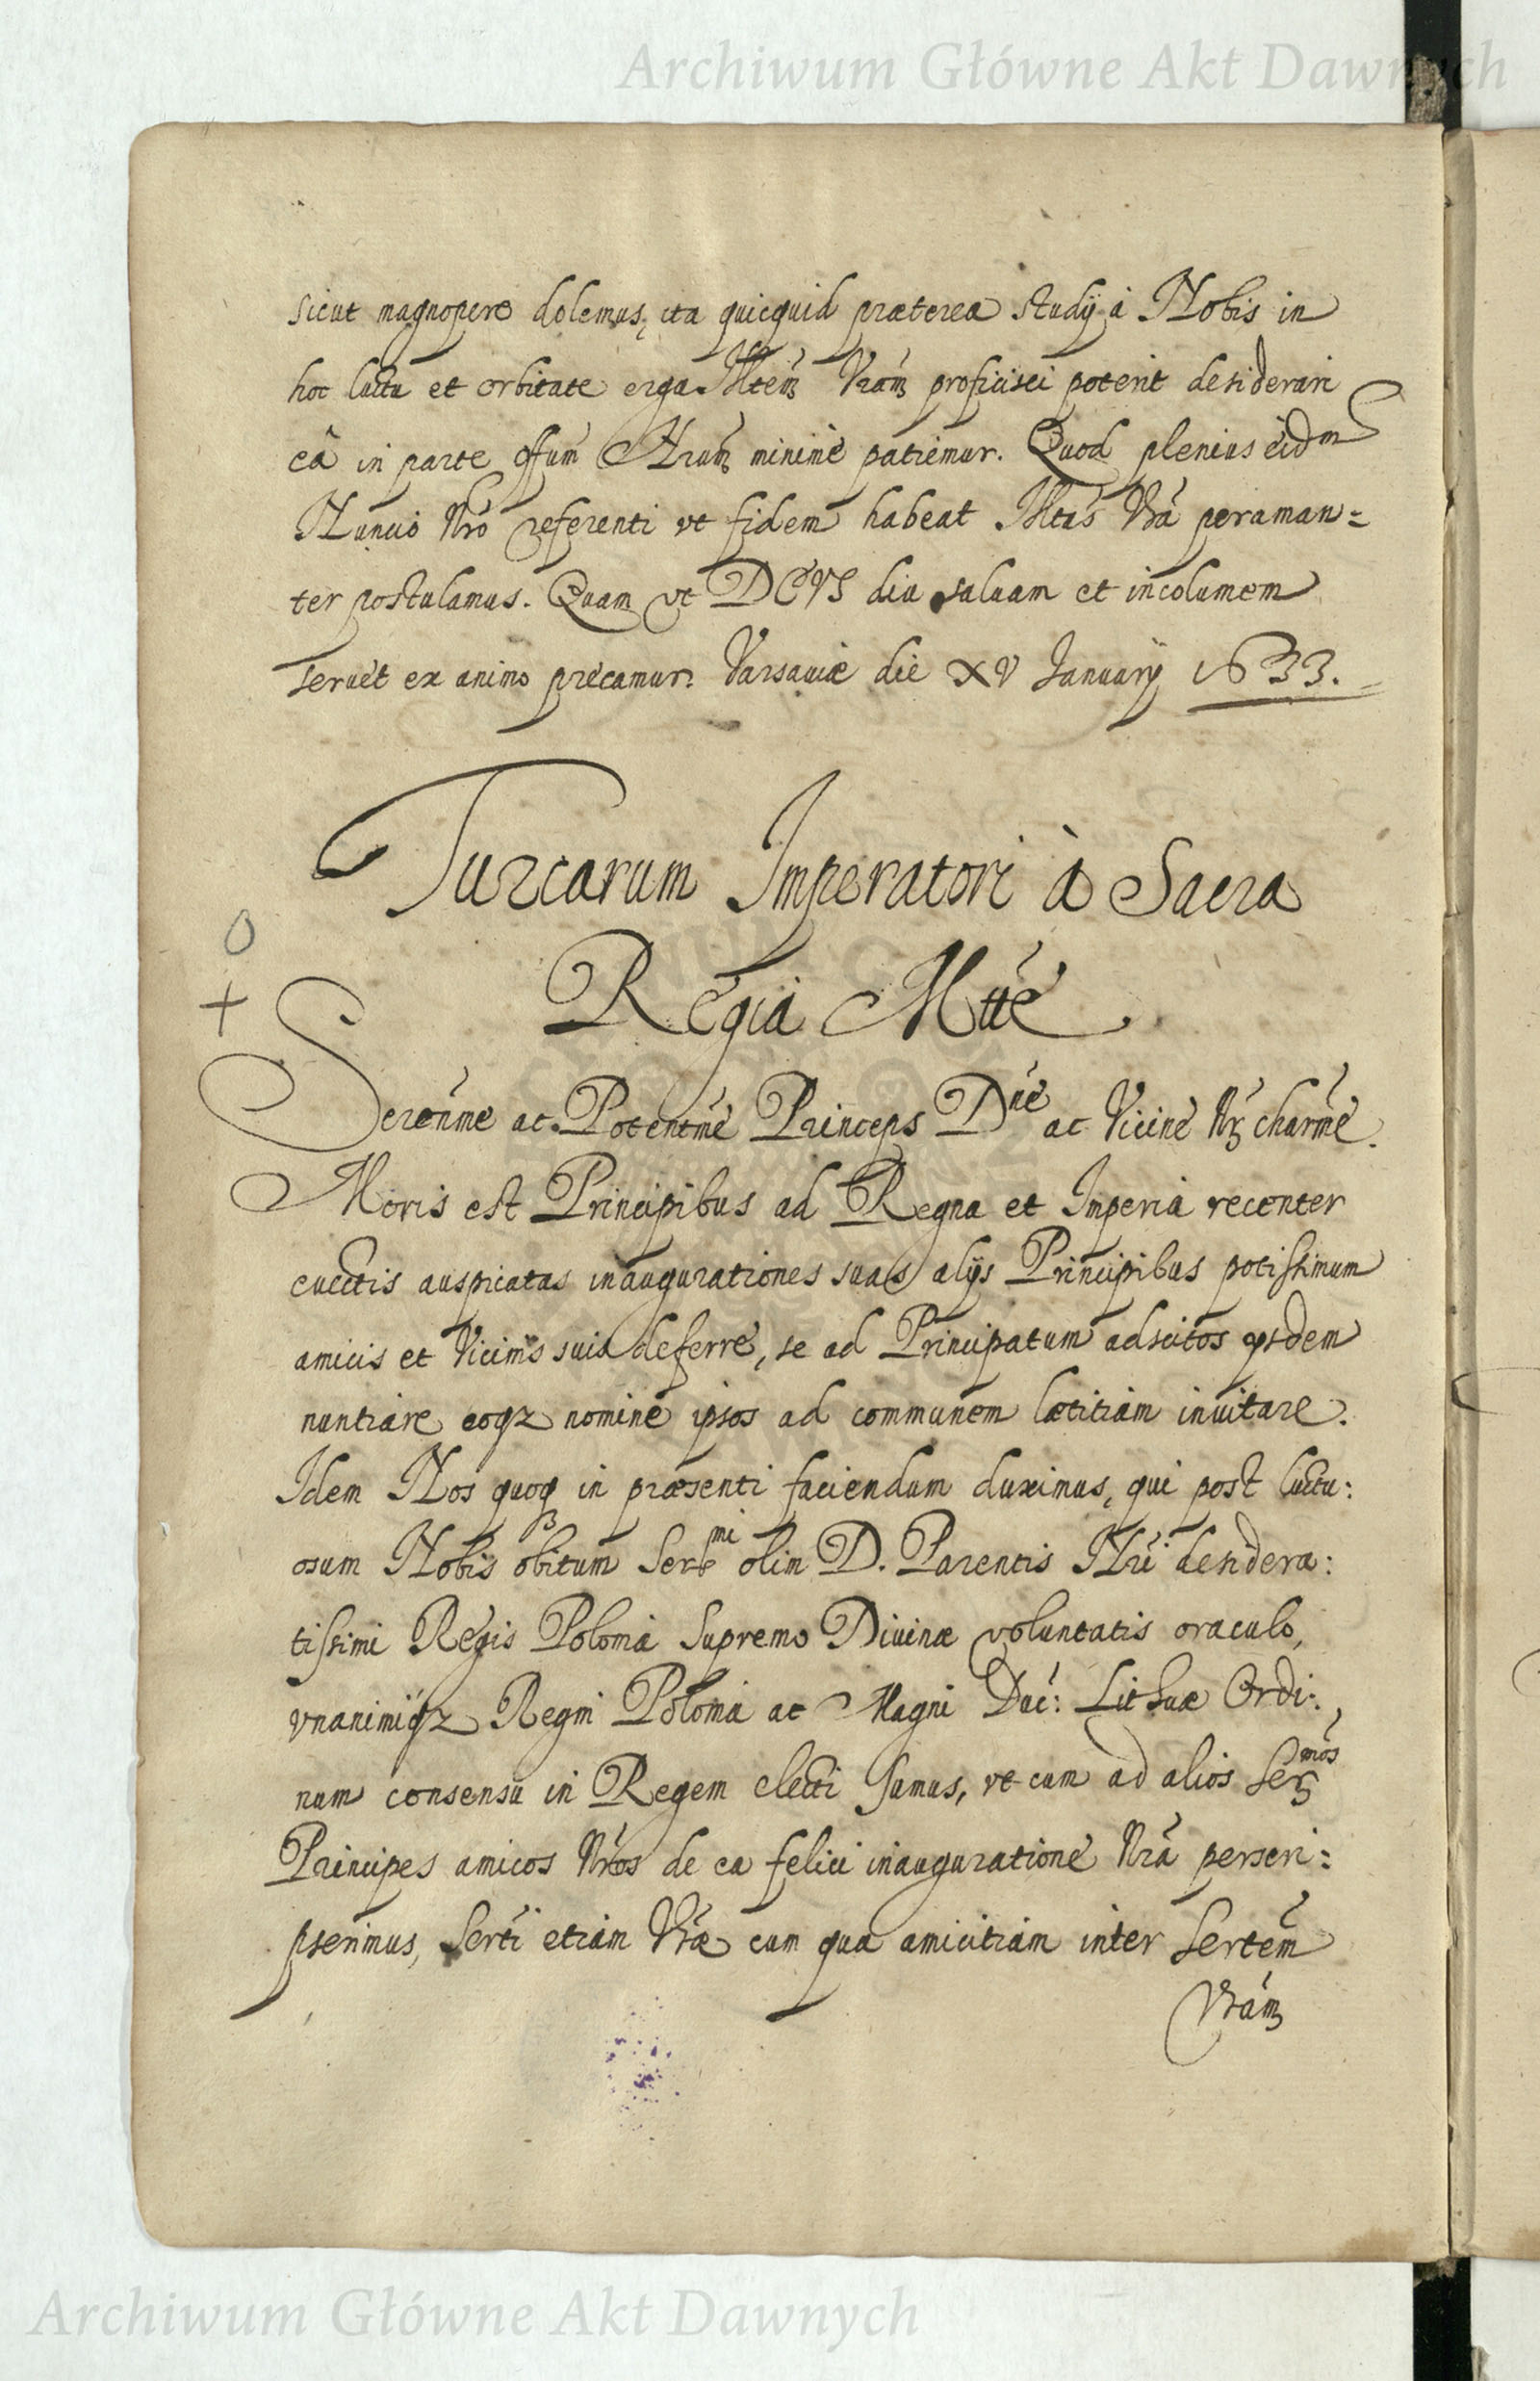 Archiwum Główne Akt Dawnych
sicut magnopere dolemus, ita quicquid præterea studÿ à Nobis in
hoc luctu et orbitate erga Illtem̃ Vr̃am proficisci poterit desiderari
eâ in parte offum̃ Nrum̃ minimè patiemur. Quod plenius eidm
Nuncio Nr̃o referenti vt fidem habeat Illtas Vrã peraman=
ter postulamus. Quam vt DEVS diu saluam et incolumem
seruet ex animo precamur. Varsauiæ die XV Januarÿ 1633.
Turcarum Imperatori à Sacra
Regia Mtte
O
+
Seren̄me ac Potentm̄e Princeps Dne ac Vicine Nr̃ charm̄e.
Moris est Principibus ad Regna et Imperia recenter
euectis auspicatas inaugurationes suas alÿs Principibus potissimum
amicis et Vicinis suis deferre, se ad Principatum adscitos ijsdem
nuntiare eoq₃ nomine ipsos ad communem lætitiam inuitare.
Idem Nos quoq₃ in præsenti faciendum duximus, qui post luctu:
osum Nobis obitum Sermi olim D. Parentis Nr̃i desidera:
tissimi Regis Poloniæ Supremo Diuinæ voluntatis oraculo,
vnanimiq₃ Regni Poloniæ ac Magni Duc: Lithuæ Ordi:
num consensu in Regem electi sumus, vt cum ad alios Sermos
Principes amicos Nr̃os de ea felici inauguratione Nr̃a perscri:
pserimus, Serti etiam Vræ cum qua amicitiam inter Sertem̃
Vram̃
Archiwum Główne Akt Dawnych